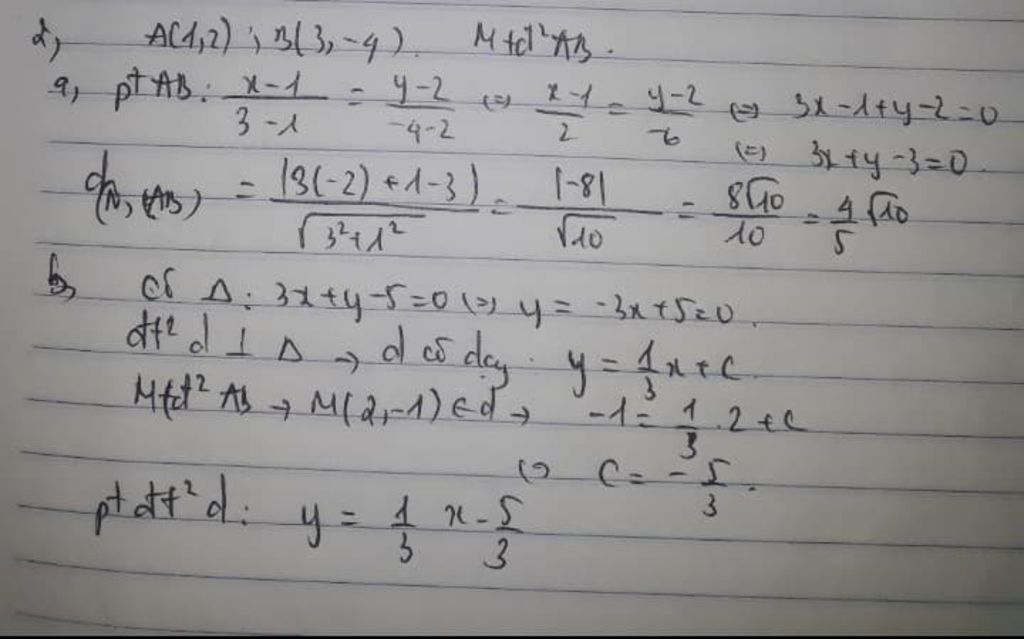 2, A(1,2) ; B(3,-4). M tđ² AB.
a, pt AB: x-1/3-1 = y-2/-4-2 (=) x-1/2 = y-2/-6 (=) 3x-1+y-2=0
(=) 3x+y-3=0.
d(N, (AB)) = |3(-2)+1-3|/√3²+1² = |-8|/√10 = 8√10/10 = 4/5 √10
b, có Δ: 3x+y-5=0 (=) y = -3x+5=0.
đt² d ⊥ Δ → d có dạng: y = 1/3 x + c.
M tđ² AB → M(2,-1) ∈ d → -1 = 1/3 . 2 + c
(=) C = -5/3.
pt đt² d: y = 1/3 x - 5/3